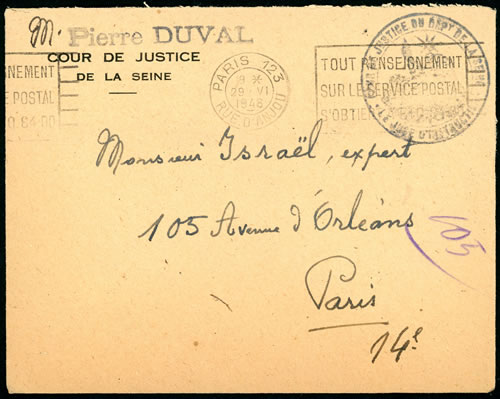 M. Pierre DUVAL
COUR DE JUSTICE
DE LA SEINE
NEMENT
E POSTAL
0.84-00
PARIS 123
9 H
29 VI
1948
RUE D'ANJOU
TOUT RENSEIGNEMENT
SUR LE SERVICE POSTAL
S'OBTIE
JUSTICE DU DEPT DE LA SEINE
LE JUGE D'INSTRUCTION
Monsieur Israël, expert
105 Avenue d'Orléans
105
Paris
14e